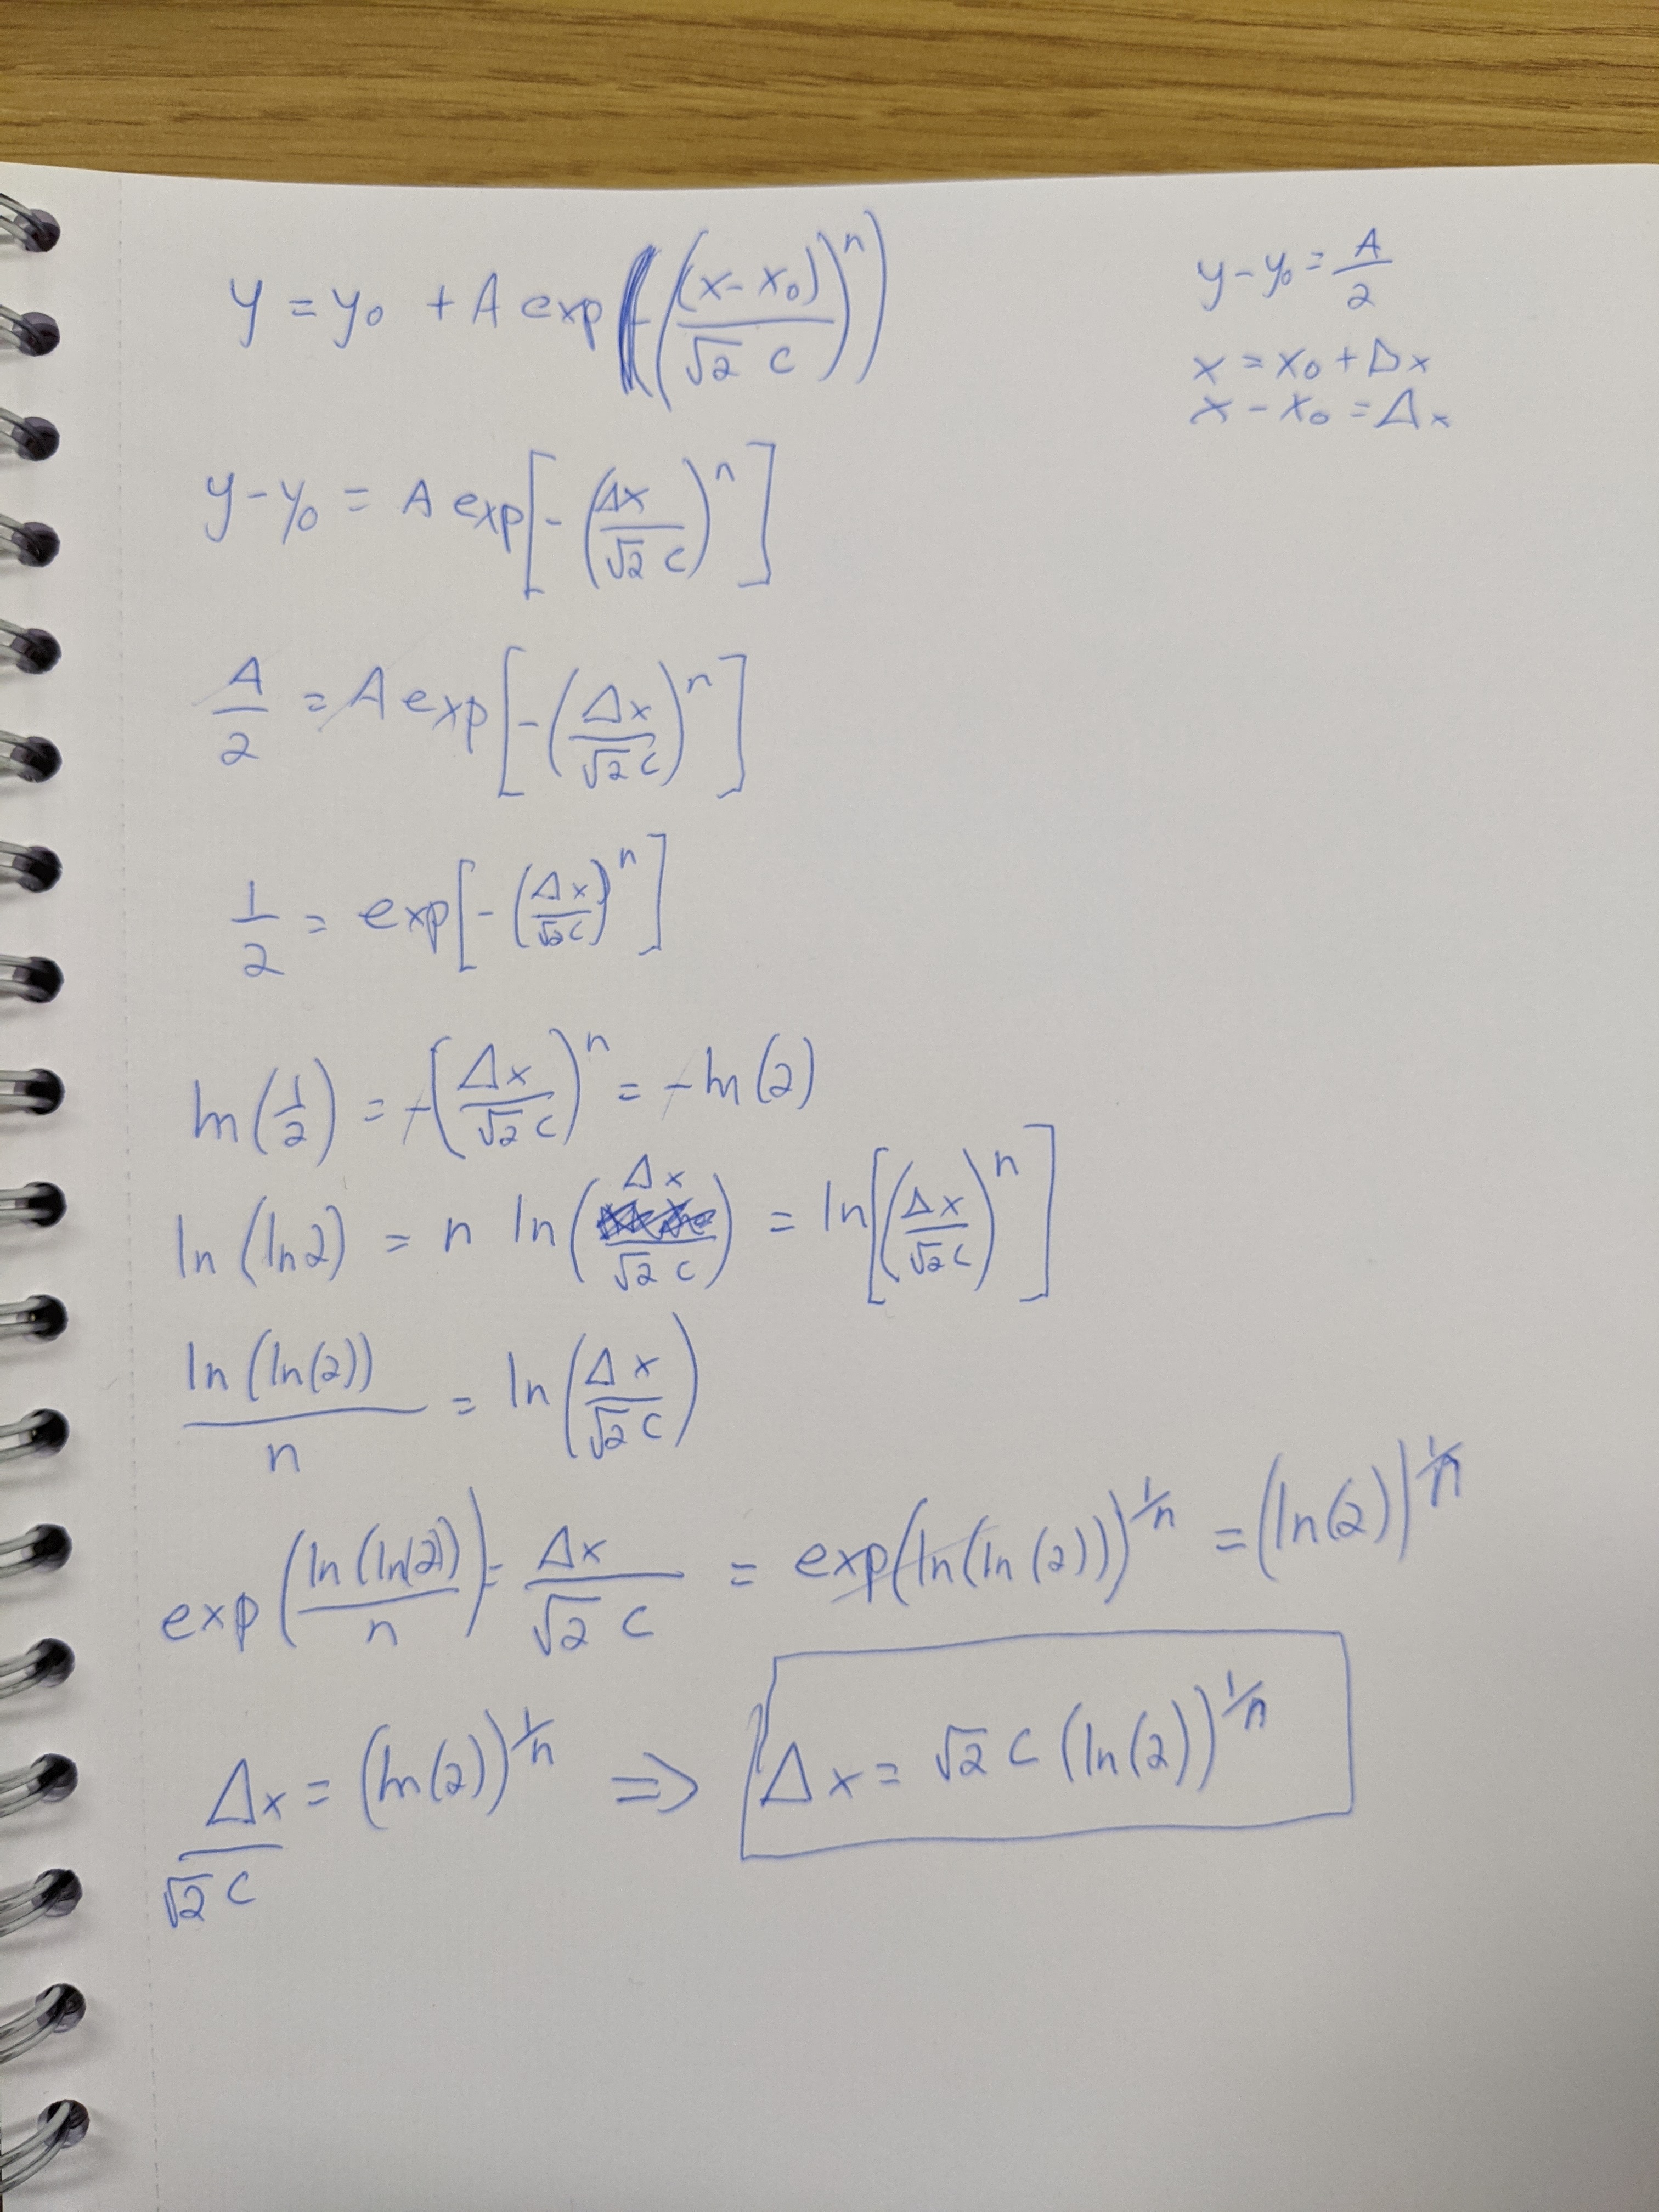 y = y₀ + A exp(-((x-x₀)/(√2 c))ⁿ)
y-y₀ = A/2
x = x₀ + Δx
x - x₀ = Δx
y-y₀ = A exp[-(Δx/(√2 c))ⁿ]
A/2 = A exp[-(Δx/(√2 c))ⁿ]
1/2 = exp[-(Δx/(√2 c))ⁿ]
ln(1/2) = -(Δx/(√2 c))ⁿ = -ln(2)
ln(ln2) = n ln(Δx/(√2 c)) = ln[(Δx/(√2 c))ⁿ]
ln(ln(2))/n = ln(Δx/(√2 c))
exp(ln(ln(2))/n) = Δx/(√2 c) = exp(ln(ln(2)))^(1/n) = (ln(2))^(1/n)
Δx/(√2 c) = (ln(2))^(1/n) ⇒ Δx = √2 c (ln(2))^(1/n)